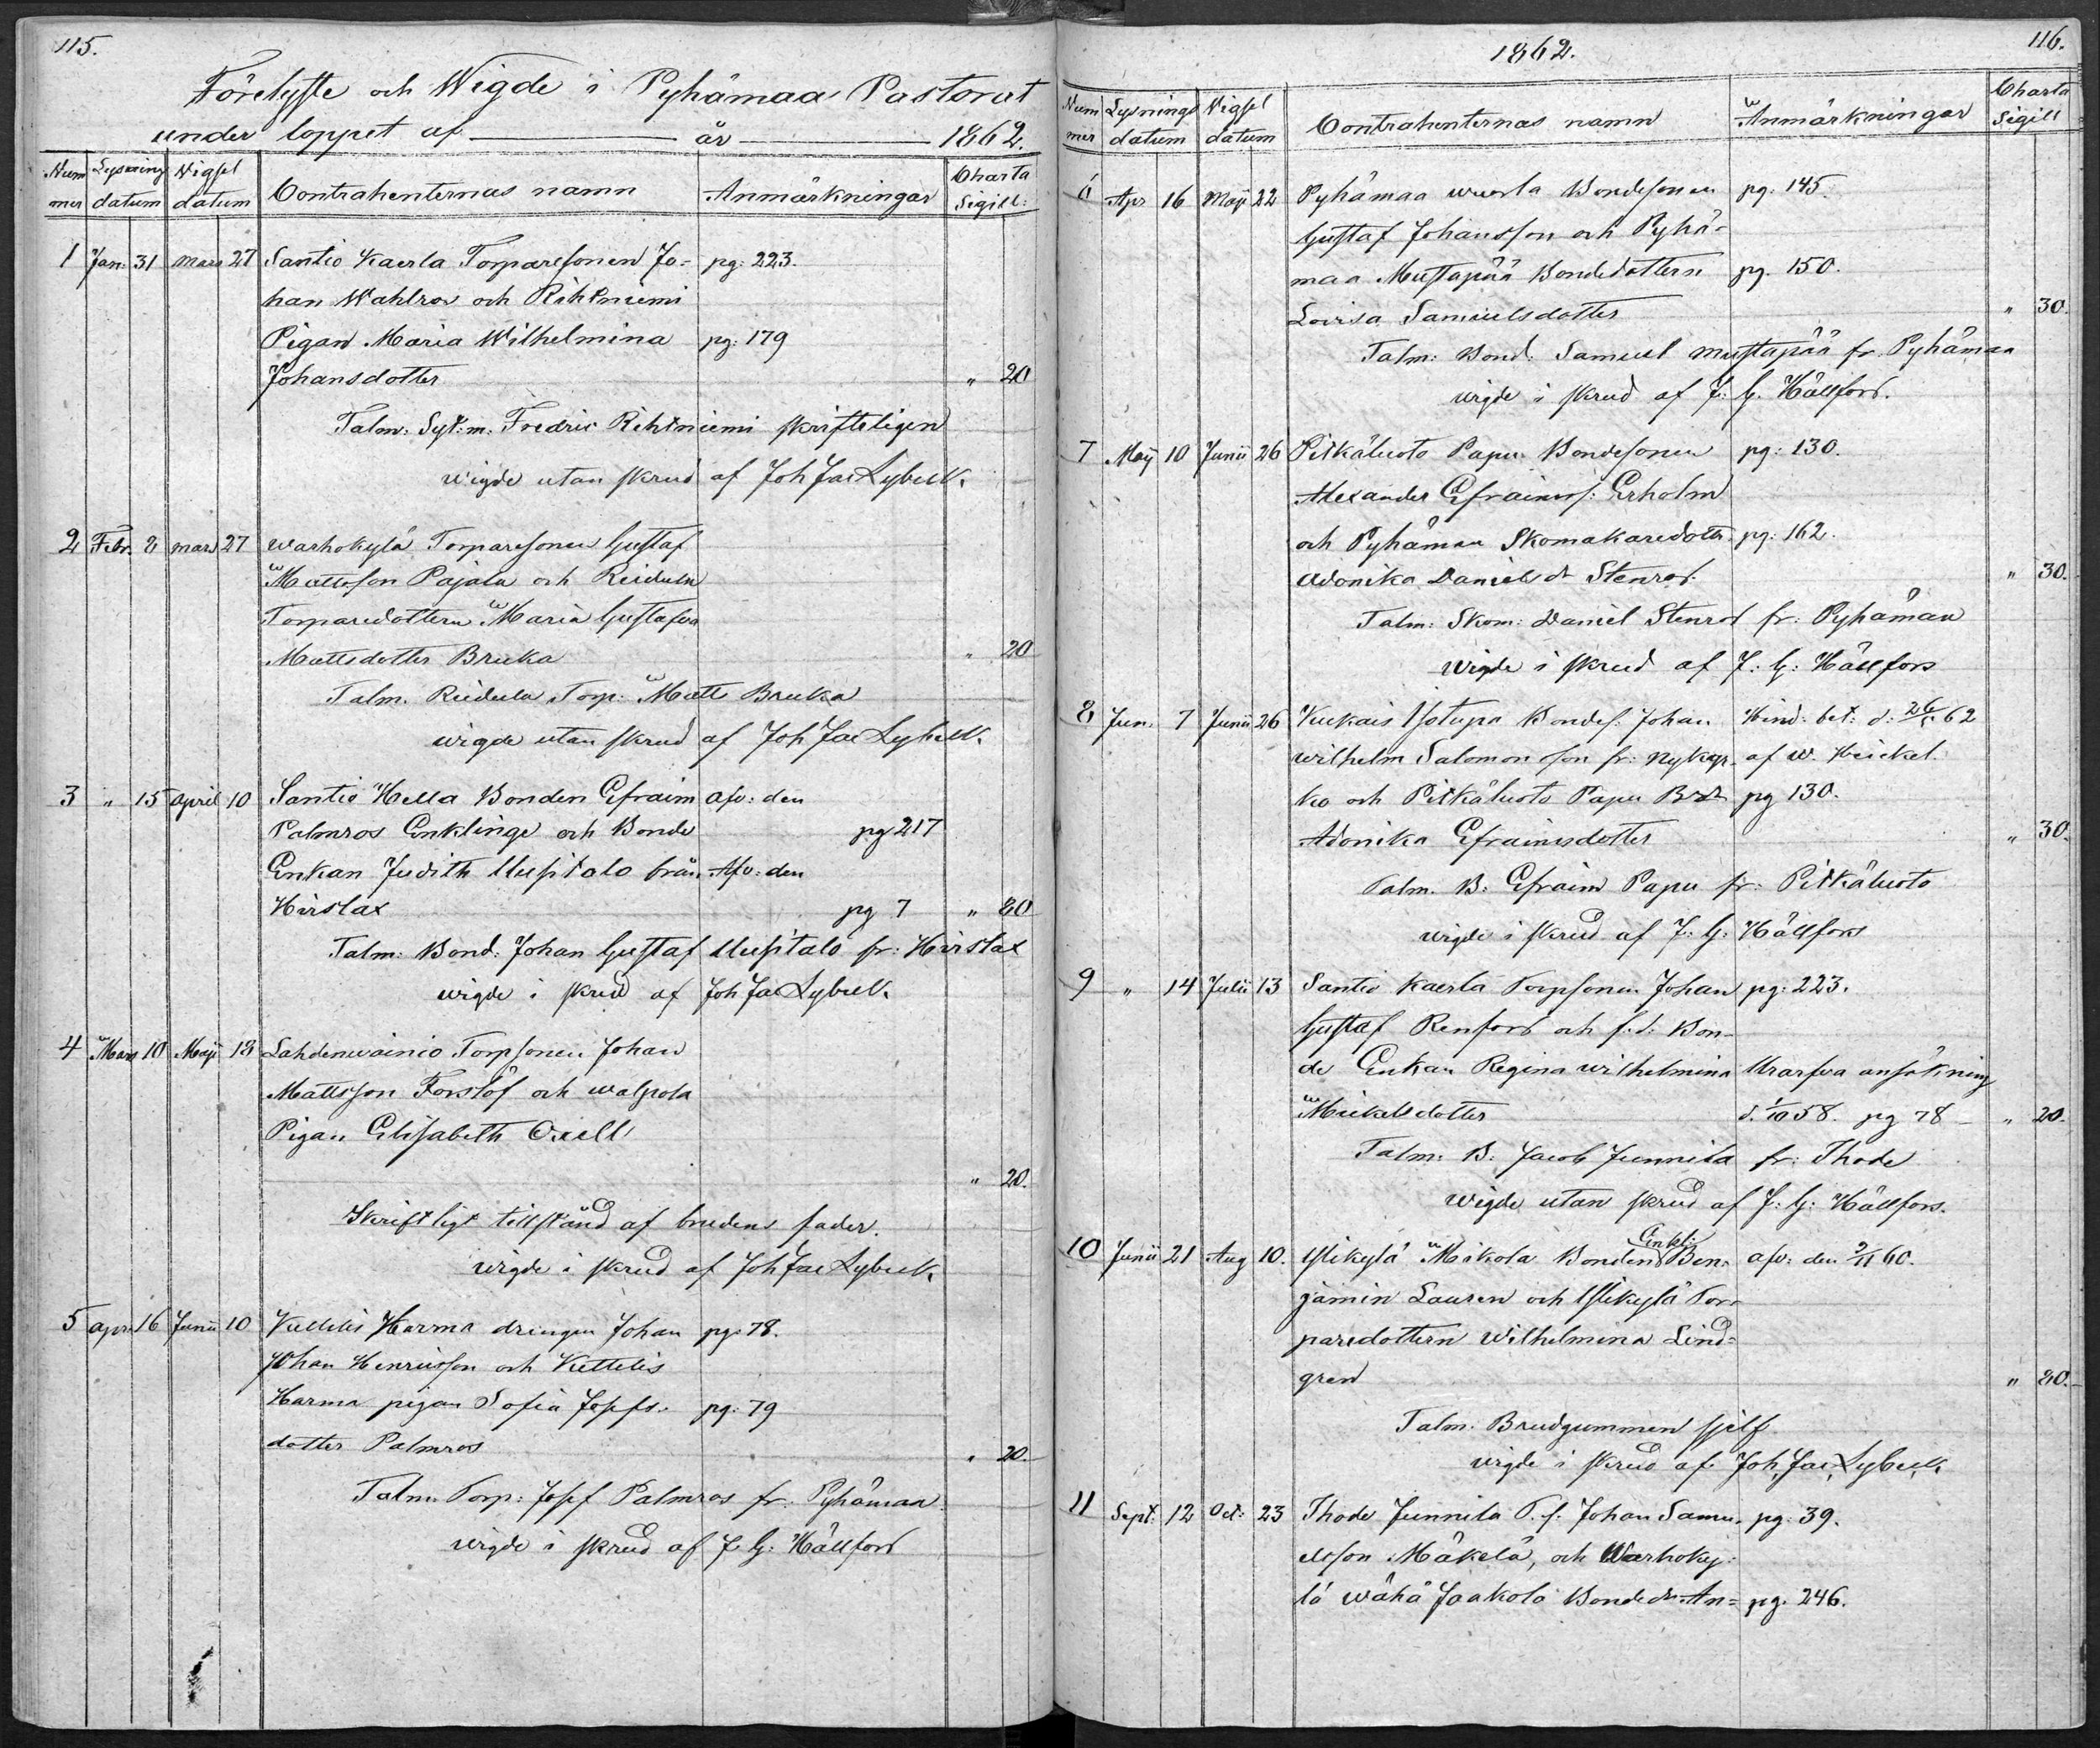 115.
Förelyste och Wigde i Pyhämaa Pastorat
under loppet af år 1862.
Num mer Lysning datum Vigsel datum Contrahenternas namn Anmärkningar Charta Sigill:
1 Jan: 31 Mars 27 Santio Kaerla Torparesonen Jo- pg: 223.
han Wahlros och Rihtniemi
Pigan Maria Wilhelmina pg: 179
Johansdotter " 20
Talm: Syt:m: Fredric Rihtniemi skrifteligen
wigde utan skrud af Joh Jac Lybeck.
2 Febr. 2 mars 27 Warhokylä Torparesonen Gustaf
Mattsson Pajala och Reidula
Torparedottern Maria Gustafva
Mattsdotter Bruka " 20
Talm. Reidula Torp: Matts Bruka
wigde utan skrud af Joh Jac Lybeck.
3 " 15 April 10 Santio Hella Bonden Efraim afv: den
Palmros Enklinge och Bonde pg 217
Enkan Judith Uusitalo från Afv: den
Hirslax pg 7 " 80
Talm: Bond: Johan Gustaf Uusitalo fr: Hirslax
wigde i skrud af Joh Jac Lybeck.
4 Mars 10 Maji 18 Lahdenwainio Torpsonen Johan
Mattsson Forslöf och Walpola
Pigan Elisabeth Oxell
" 20.
Skriftligt tillstånd af brudens fader.
wigde i skrud af Joh Jac Lybeck.
5 apr 16 Junii 10 Kettelis Harma drengen Johan pg: 78.
Johan Henricsson och Kettelis
Harma pigan Sofia Josefs- pg: 79
dotter Palmros " 20.
Talm: Torp: Josef Palmros fr: Pyhämaa.
wigde i skrud af J. G: Hällfors
1862.
116.
Num mer Lysnings datum Vigsel datum Contrahenternas namn Anmärkningar Charta Sigill
6 Apr 16 Maji 22 Pyhämaa Bondesonen pg: 145.
Gustaf Johansson och Pyhä-
maa Mustapää Bondedottern pg. 150.
Lovisa Samuelsdotter " 30.
Talm: Bond: Samuel Mustapää fr. Pyhämaa
wigde i skrud af J: G. Hällfors.
7 Maij 10 Junii 26 Pitkäluoto Papu Bondesonen pg: 130.
Alexander Efraimss: Erholm
och Pyhämaa Skomakaredottr. pg: 162.
Adonika Daniels dr Stenros. " 30.
Talm: Skom: Daniel Stenros fr: Pyhämaa
wigde i skrud af J: G: Hällfors
8 Jun. 7 Junii 26 Kukais Isotupa Bondes: Johan Hind: bet: d: 26/5 62
Wilhelm Salomonsson fr: Nykyr- af W. Heickel.
ko och Pitkäluoto Papu Bdr pg 130.
Adonika Efraimsdotter " 30.
Talm. B: Efraim Papu fr: Pitkäluoto
wigde i skrud af J: G: Hällfors
9 " 14 Julii 13 Santio Kaerla Torpsonen Johan pg: 223.
Gustaf Renfors och f.d: Bon-
de Enkan Regina Wilhelmina Urarfva ansökning
Mickelsdotter d. 1/10 58. pg 78 - " 20.
Talm: B: Jacob Junnila fr: Thode
wigde utan skrud af J: G: Hällfors.
10 Junii 21 Aug 10. Ylikylä Mikola Bonden Enkl: Ben- afv: den 9/11 60.
jamin Lauren och Ylikylä Tor-
paredottern Wilhelmina Lind-
gren " 20.
Talm. Brudgummen sjelf
wigde i skrud af Joh, Jac, Lybeck
11 Sept: 12 Oct: 23 Thode Junnila T. s. Johan Samu- pg: 39.
elsson Mäkelä, och Warhoky-
lä Wähä Jaakola Bonde dr An= pg. 246.